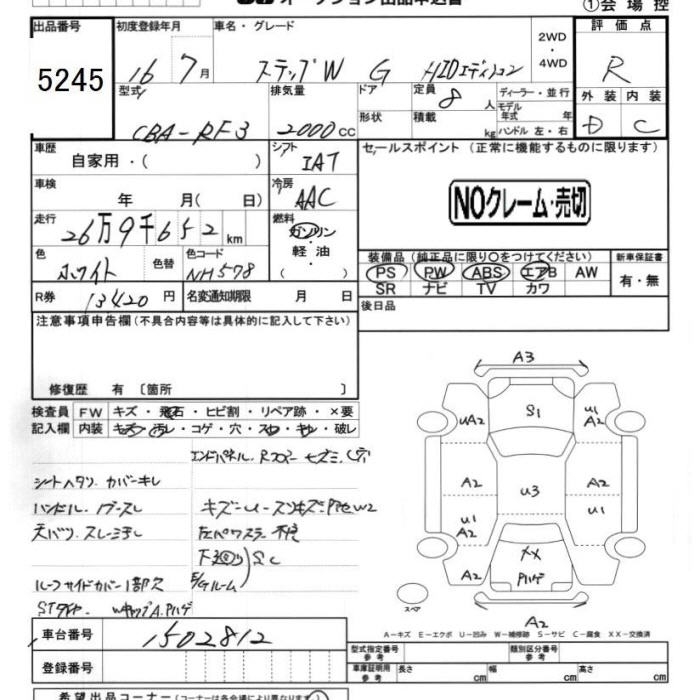 オークション出品申込書
①会場控
出品番号 5245
初度登録年月 16 7月
車名・グレード ステップW G HIDエディション
2WD・4WD
評価点 R
外装 D 内装 C
型式 CBA-RF3
排気量 2000cc
ドア 形状
定員 8人
積載 kg
ディーラー・並行
モデル年式 年
ハンドル 左・右
車歴 自家用・( )
シフト IAT
セールスポイント (正常に機能するものに限ります)
NOクレーム・売切
車検 年 月(日)
冷房 AAC
走行 26万9千652km
燃料 ガソリン・軽油・( )
色 ホワイト 色替
色コード NH578
装備品 (純正品に限り○をつけてください)
PS PW ABS エアB AW
SR ナビ TV カワ
新車保証書 有・無
R券 13420円
名変通知期限 月 日
後日品
注意事項申告欄 (不具合内容等は具体的に記入して下さい)
修復歴 有 〔箇所 〕
検査員記入欄
FW キズ・飛石・ヒビ割・リペア跡・×要
内装 キズ・汚レ・コゲ・穴・スレ・キレ・破レ
エンドパネル、Rフロアー
シートヘタリ カバーキレ
ハンドル
天バリ
左パワスラ 不良
下廻り SC
E/Gルーム
ルーフサイドカバー1部欠
A3
S1
UA2
U1 A2
A2
U3
A2
U1 A2
U1
XX
Pハゲ
A2
A2
A2
スペア
A−キズ E−エクボ U−凹み W−補修跡 S−サビ C−腐食 XX−交換済
車台番号 1502812
登録番号
型式指定番号 参考
類別区分番号 参考
車庫証明用 参考 長さ cm 幅 cm 高さ cm
希望出品コーナー(コーナーは各会場により異なります)